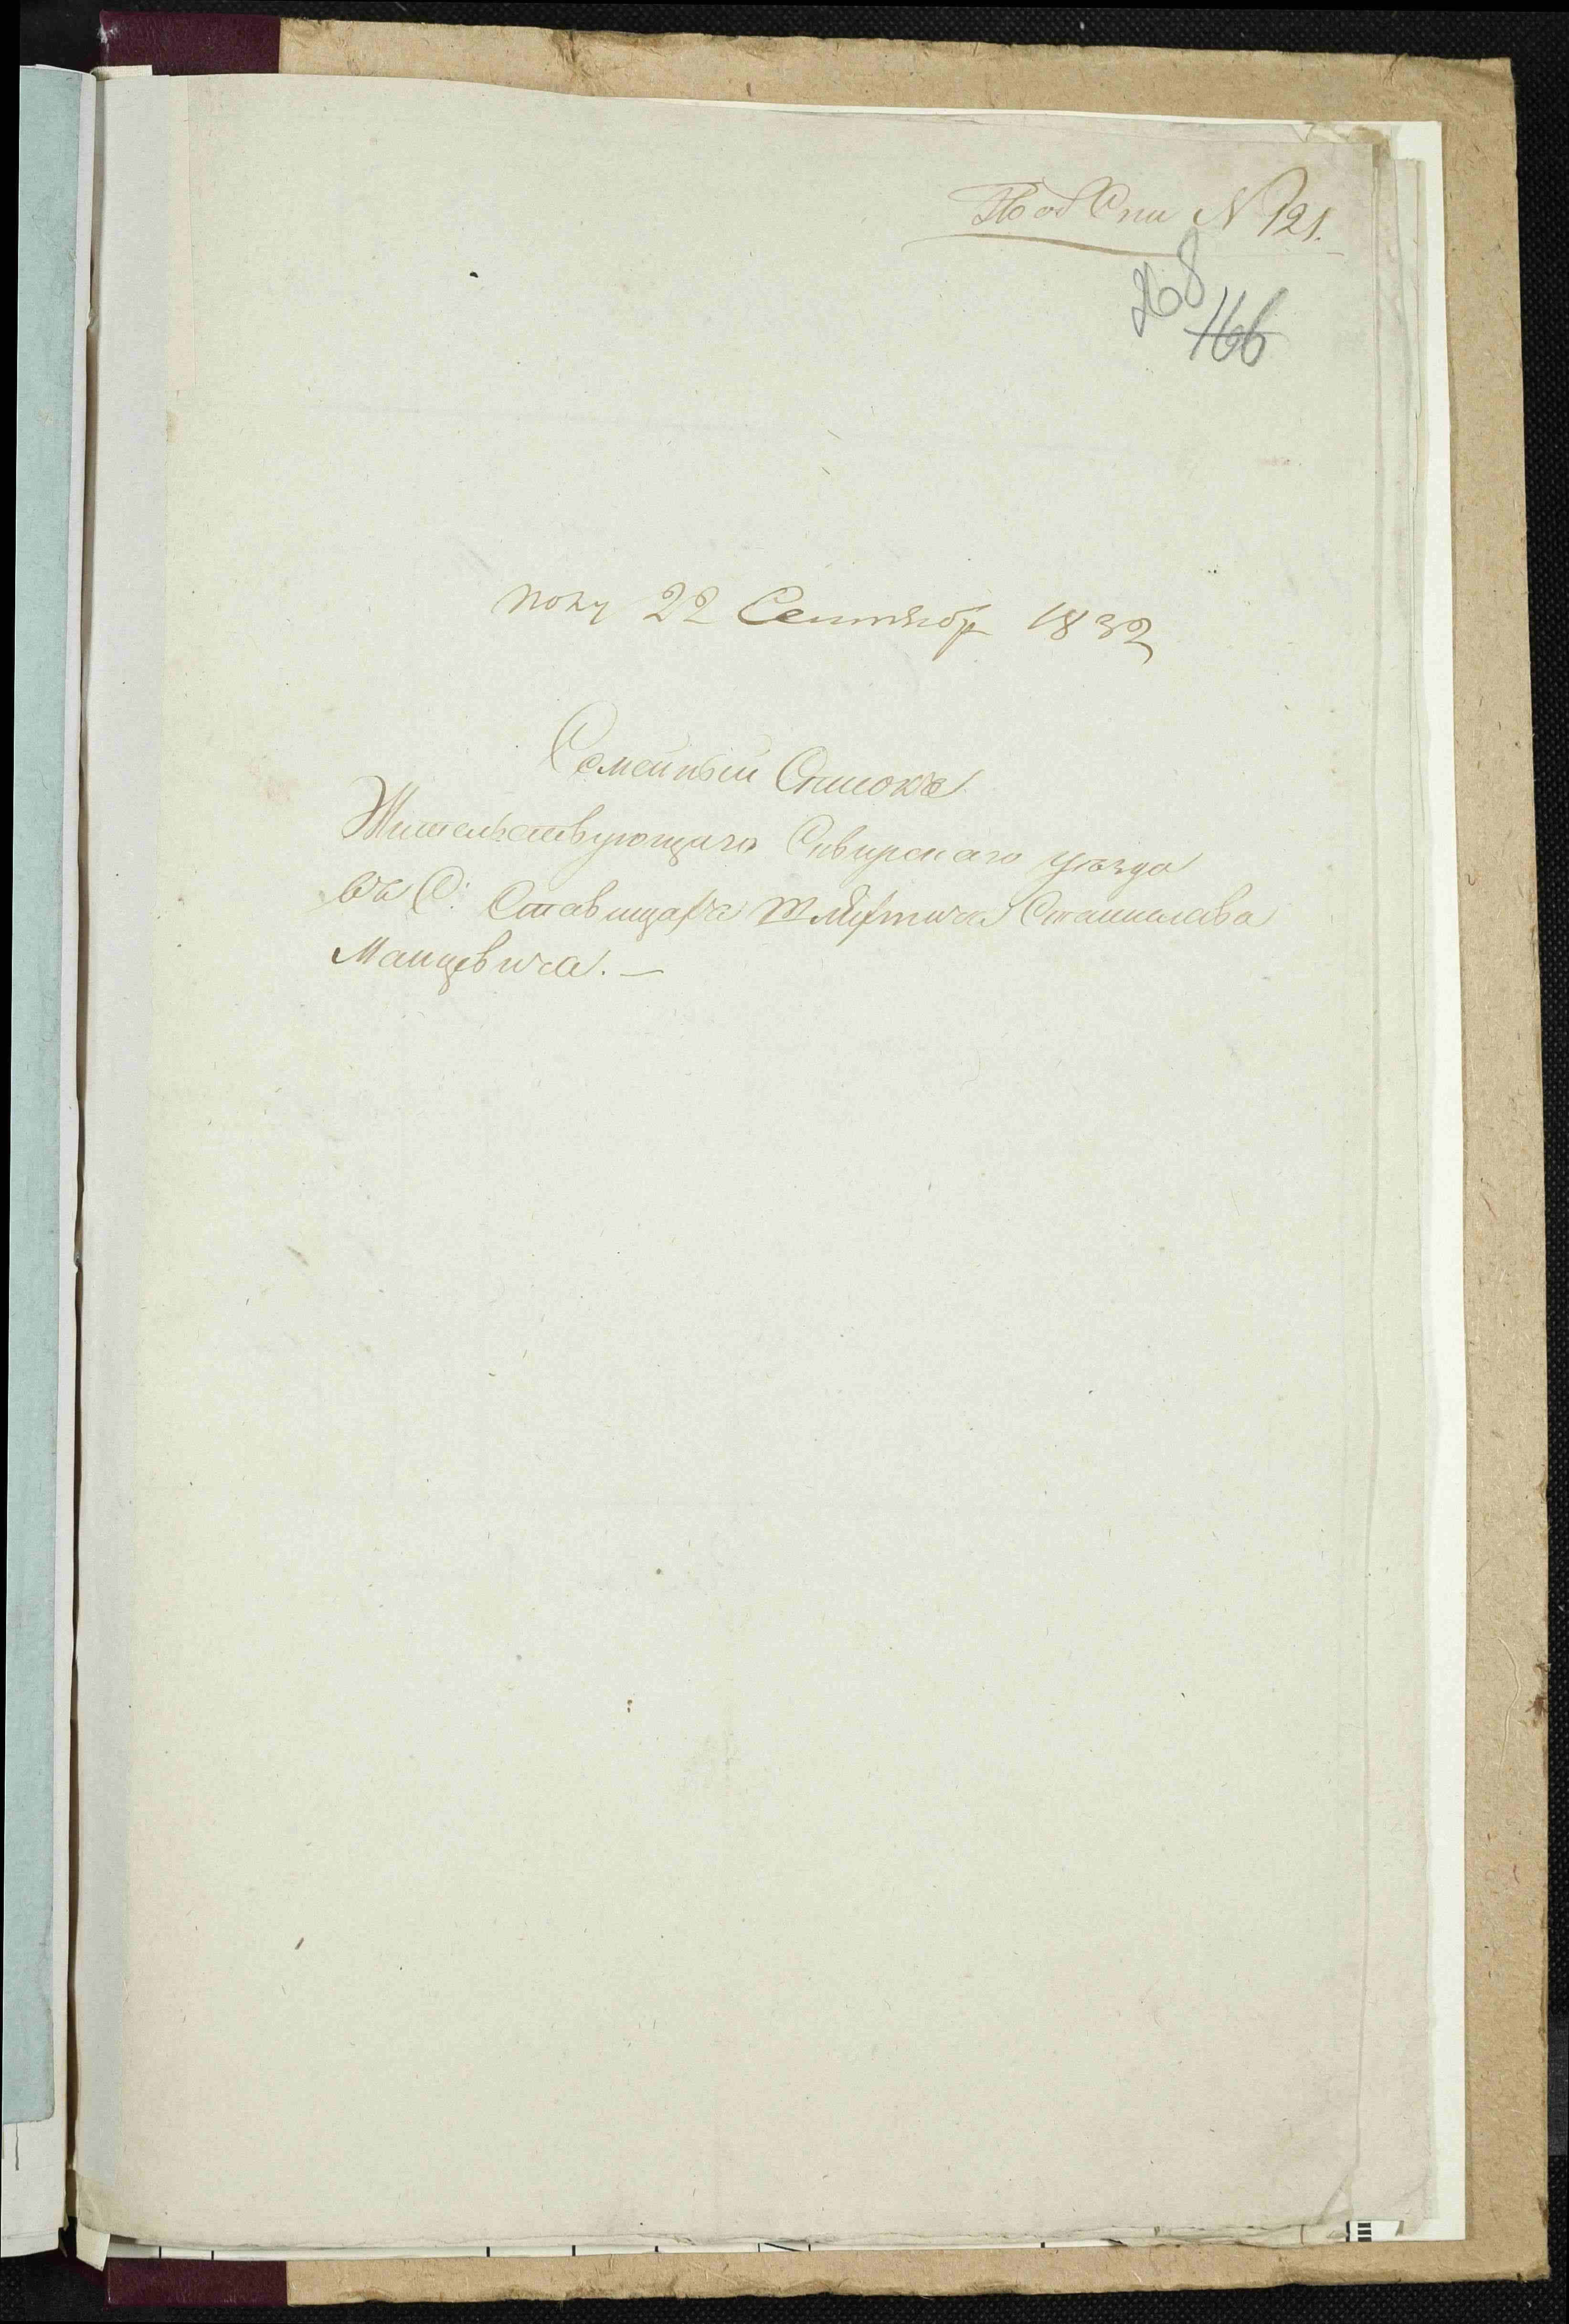 Под Спи N 121.
168
166
полу 22 Сентябр 1832
Семейный Списокъ
Жительствующаго Сквирскаго уѣзда
въ С: Ставищахъ Шляхтича Станислава
Манцевича. —